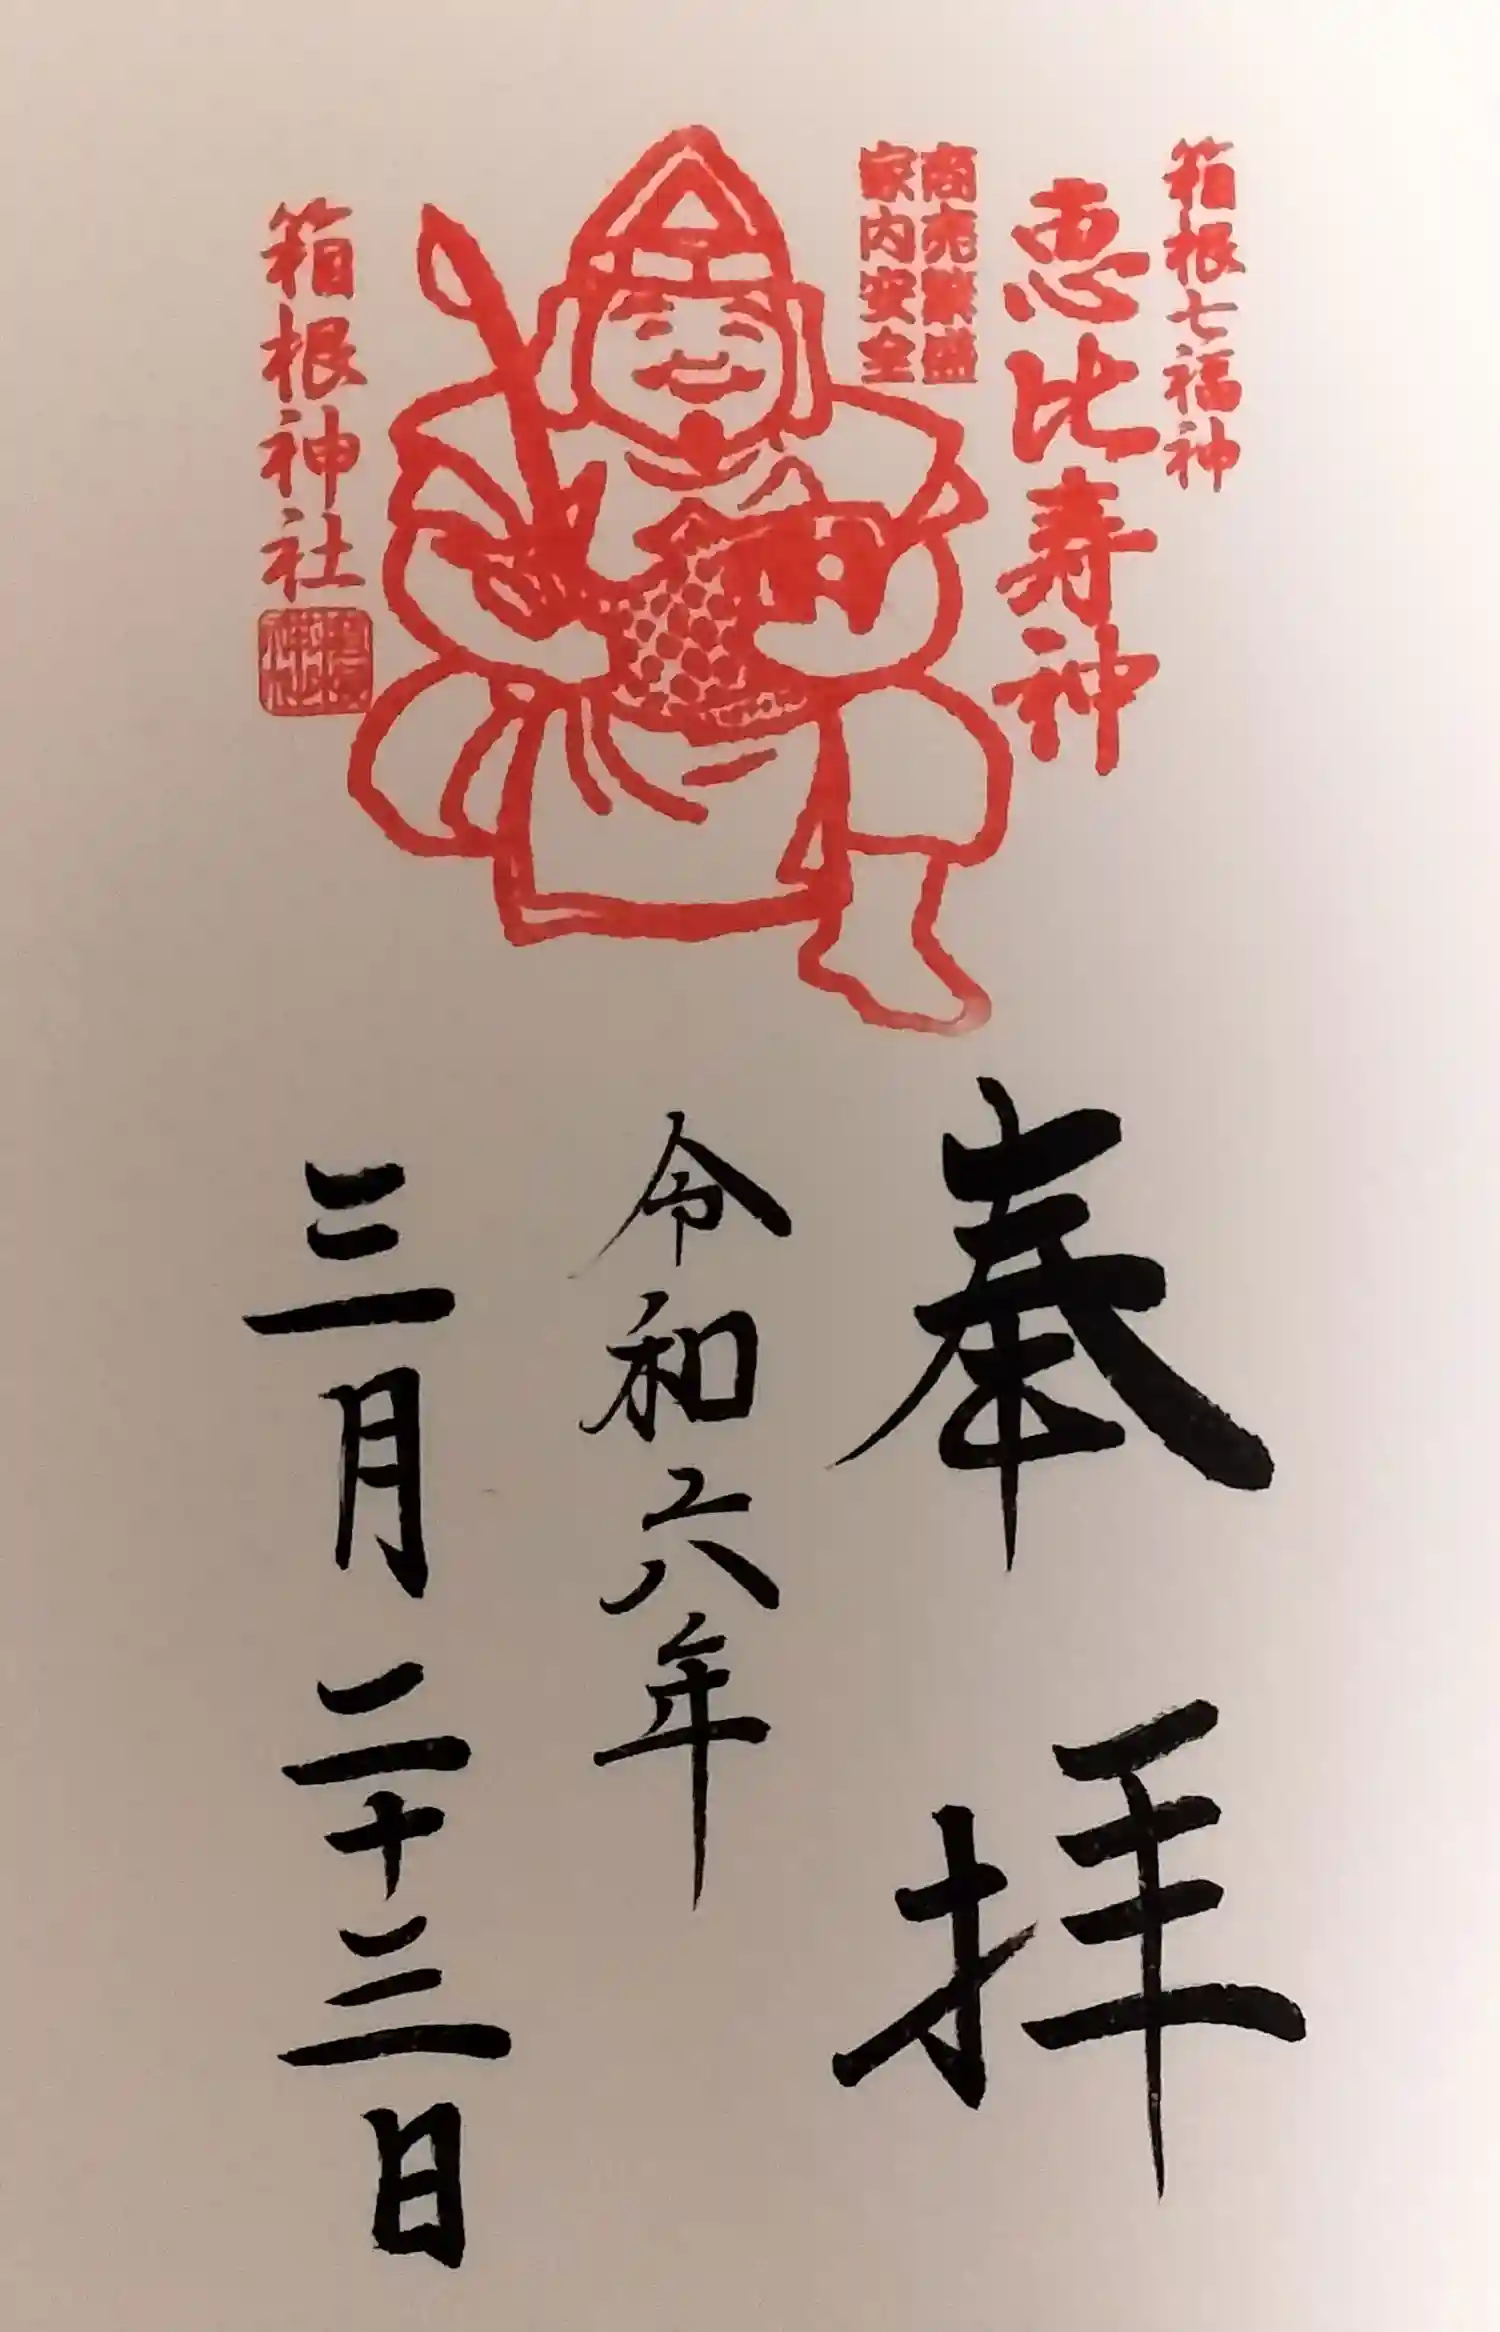 箱根七福神
恵比寿神
商売繁盛
家内安全
箱根神社
奉拝
令和六年
三月二十三日